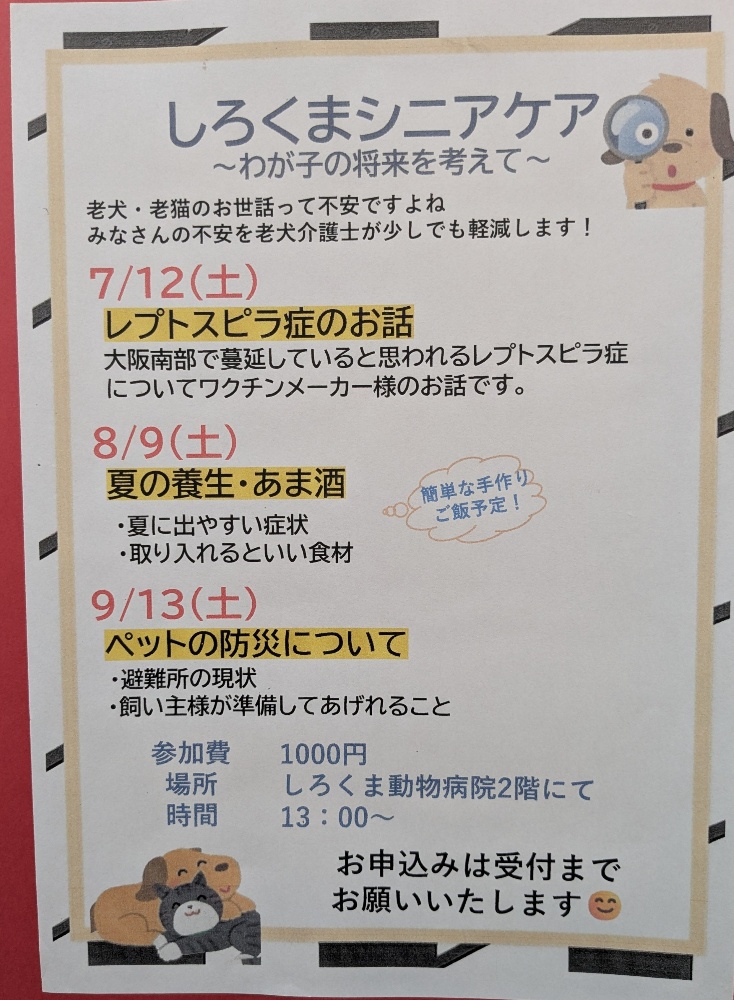 しろくまシニアケア
～わが子の将来を考えて～
老犬・老猫のお世話って不安ですよね
みなさんの不安を老犬介護士が少しでも軽減します！
7/12(土)
レプトスピラ症のお話
大阪南部で蔓延していると思われるレプトスピラ症
についてワクチンメーカー様のお話です。
8/9(土)
夏の養生・あま酒
・夏に出やすい症状
・取り入れるといい食材
簡単な手作り
ご飯予定！
9/13(土)
ペットの防災について
・避難所の現状
・飼い主様が準備してあげれること
参加費 1000円
場所 しろくま動物病院2階にて
時間 13：00～
お申込みは受付まで
お願いいたします😊